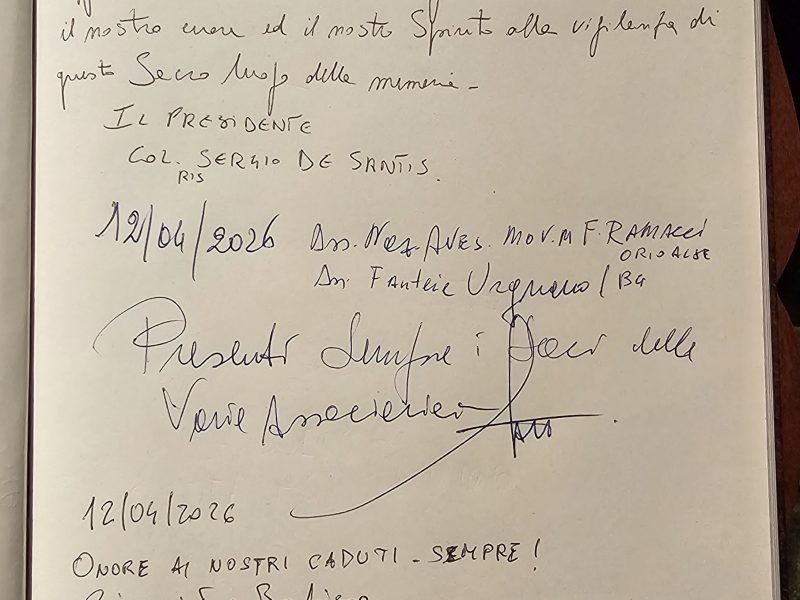 il nostro cuore ed il nostro Spirito alla vigilanza di
questo Sacro luogo delle memorie -
IL PRESIDENTE
COL. RIS SERGIO DE SANTIS.
12/04/2026 Ass. Naz. AVES. MOV.M F. RAMACCI
ORIO AL SE
Ass. Fanteie Urgnano / BG
Presenti Sempre i Soci delle
Varie Associazioni
12/04/2026
ONORE AI NOSTRI CADUTI - SEMPRE!